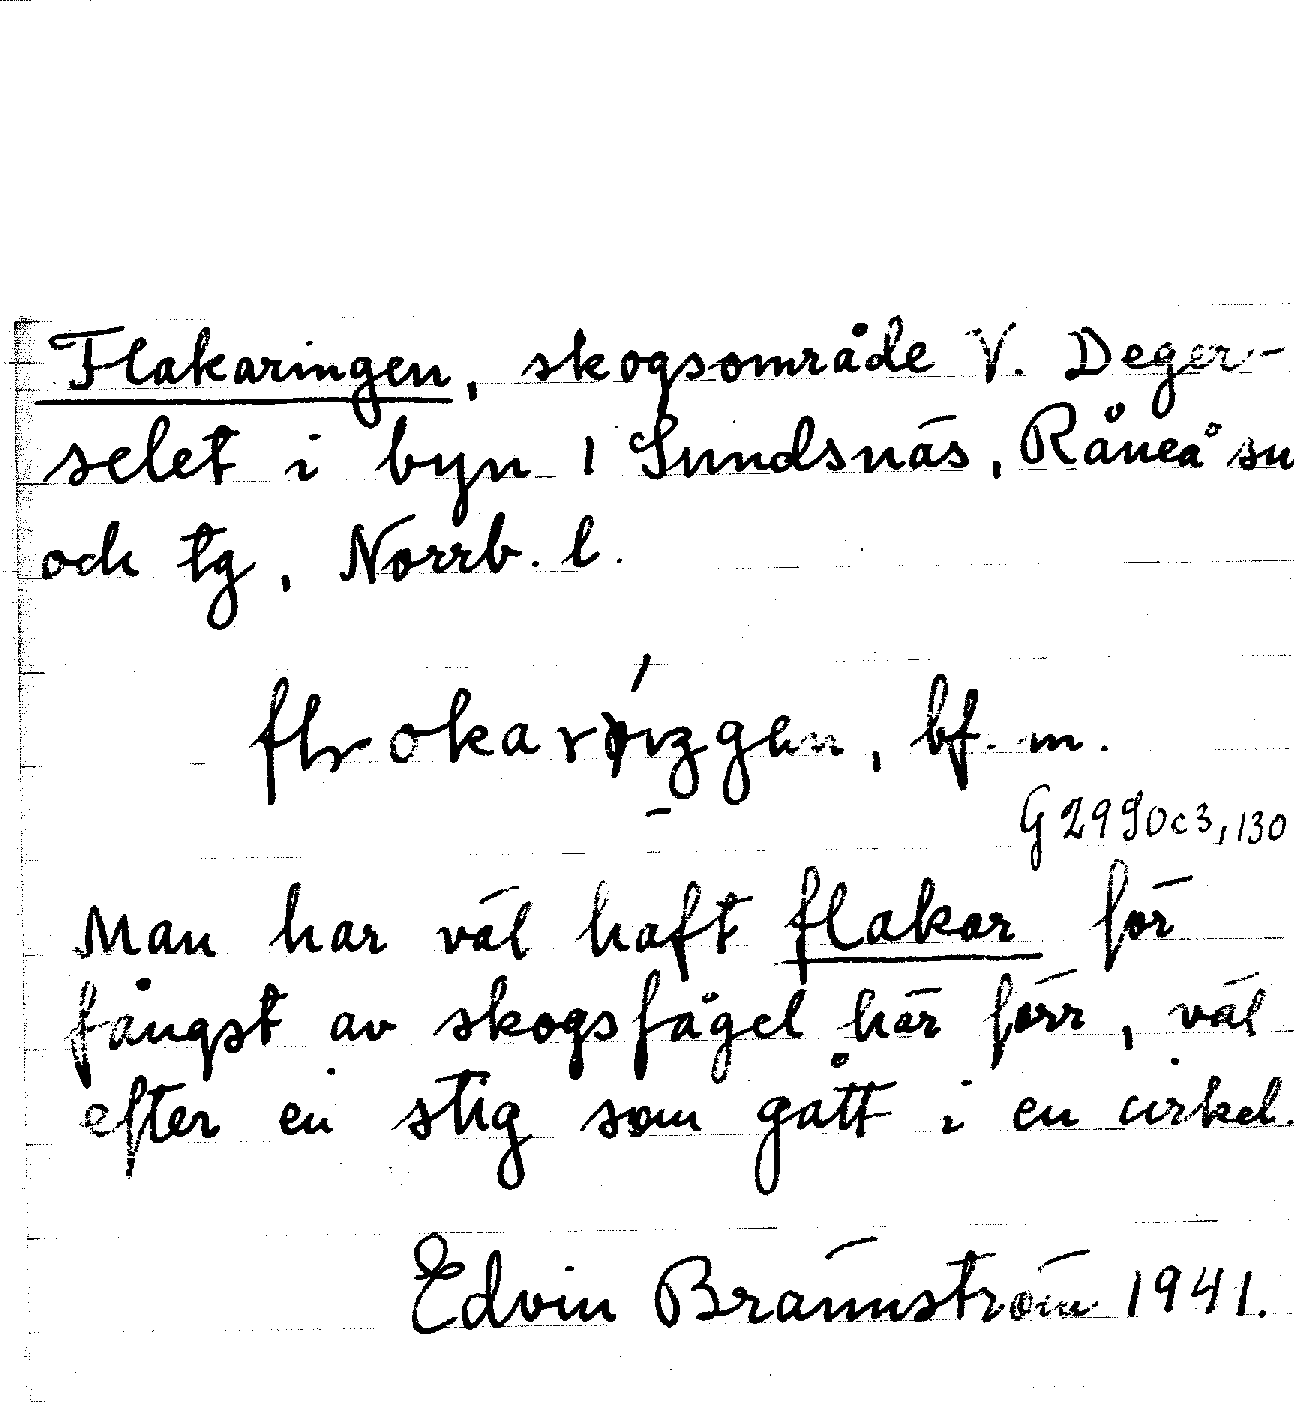 Flakaringen, skogsområde V. Deger-
selet i byn 1 Sundsnäs, Råneå sn
och tg, Norrb. l.
bf. m.
G 2990c3, 130
Man har väl haft flakar för
fångst av skogsfågel här förr, väl
efter en stig som gått i en cirkel.
Edvin Brännström 1941.